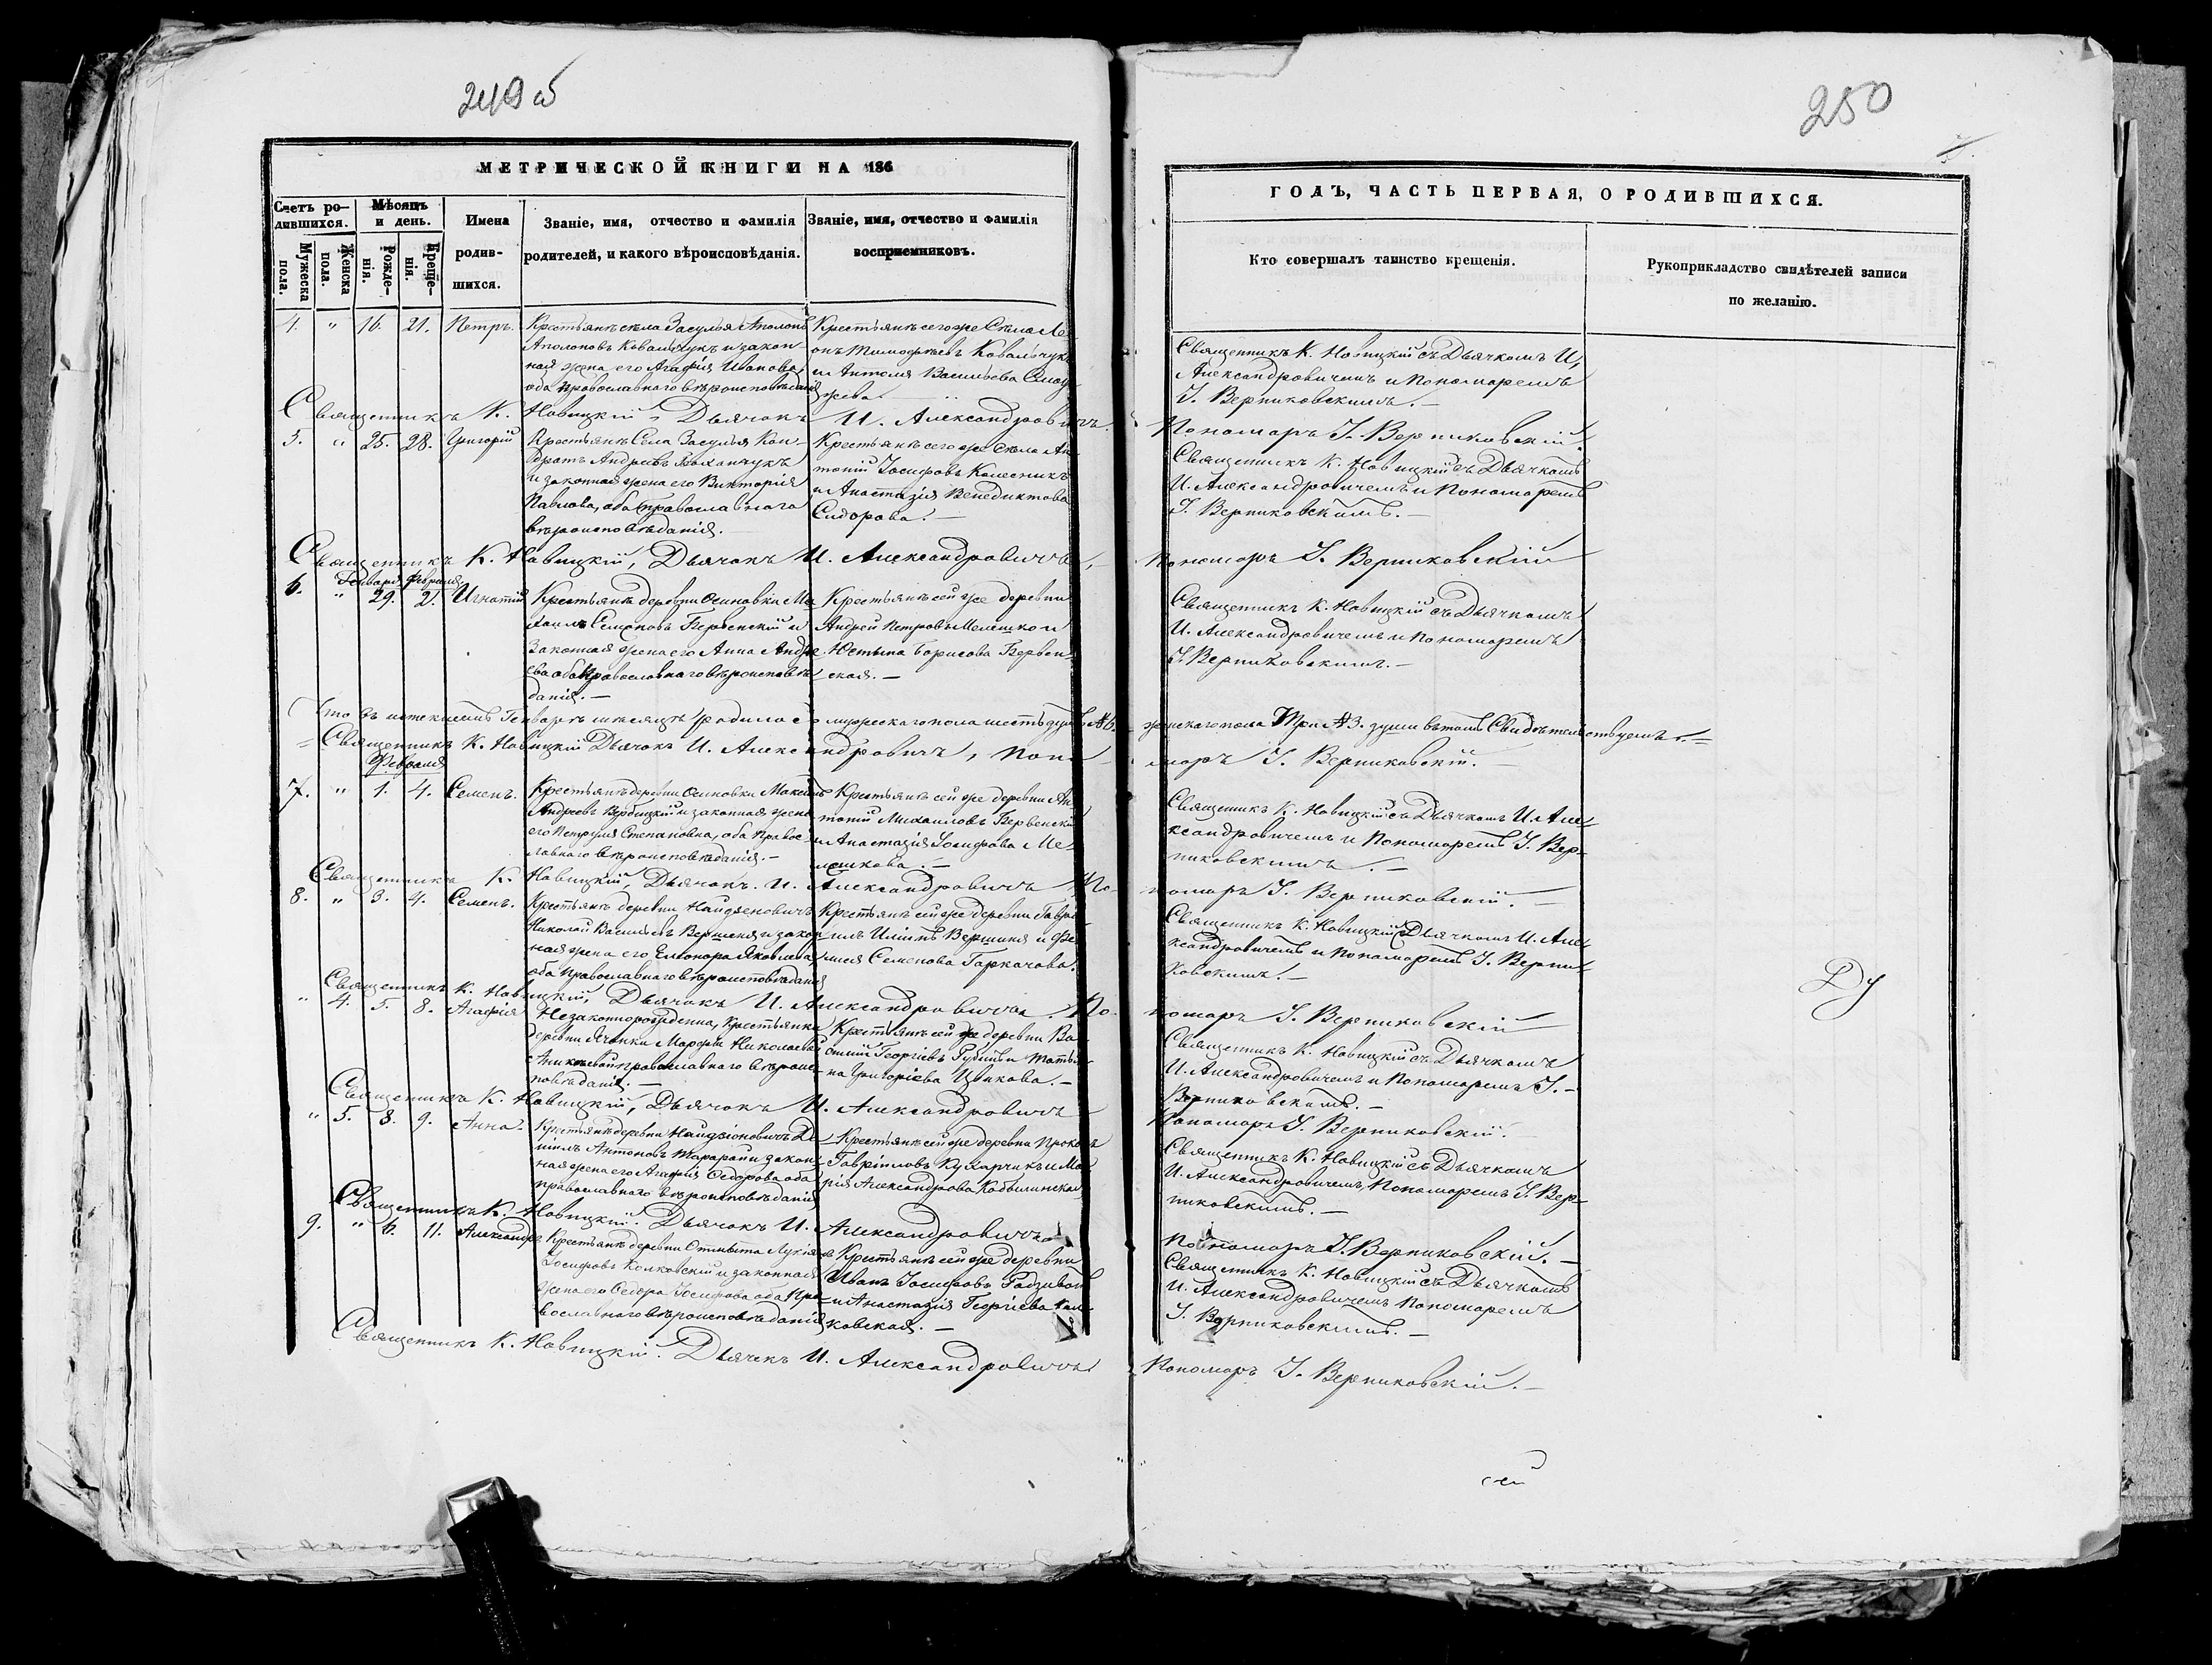 249 об
МЕТРИЧЕСКОЙ КНИГИ НА 186
Счетъ ро-
дившихся.
Мѣсяцъ
и день.
Имена
родив-
шихся.
Званіе, имя, отчество и фамилія
родителей, и какого вѣроисповѣданія.
Званіе, имя, отчество и фамилія
восприемниковъ.
Мужеска
пола.
Женска
пола.
Рожде-
нія.
Креще-
нія.
" 16. 21. Петръ.
Крестьянъ села Засулья Аполонъ
Аполоновъ Ковальчукъ и закон-
ная жена его Агафія Иванова,
оба православнаго вѣроисповѣданія
Крестьянъ сего же Села Ле-
онъ Тимофѣевъ Ковальчукъ
и Антоля Васильева
Священникъ К. Новицкій, Дьячокъ И. Александровичъ.
5. " 25. 28. Григорій
Крестьянъ Села Засулья Кон-
дратъ Андреевъ
и законная жена его Виктория
Павлова, оба православнаго
вѣроисповѣданія.
Крестьянъ сего же Села Ан-
тоній Іосифовъ Колесникъ
и Анастазія Венедиктова
Сидорова. —
Священникъ К. Новицкій, Дьячокъ И. Александровичъ,
Генваря Февраля
6. " 29. 2. Игнатій
Крестьянъ деревни Осиновки Ми-
хаилъ Семеновъ Бервенскій и
Законная жена его Анна Андре-
ева оба православнаго вѣроисповѣ-
данія. —
Крестьянъ сей же деревни
Андрей Петровъ Мелешко и
Юстына Борисова Бервен-
ская. —
Что въ истекшемъ Генварѣ мѣсяцѣ родилось мужескаго пола шесть душъ №6.
Священникъ К. Новицкій Дьячокъ И. Александровичъ, Поно-
Февраля
7. " 1. 4. Семенъ.
Крестьянъ деревни Осиновки Максимъ
Андреевъ Вербицкій и законная жена
его Петруля Степановна, оба Правос-
лавнаго вѣроисповѣданія. —
Крестьянъ сей же деревни Ан-
тоній Михаиловъ Бервенскій
и Анастазія Іосифова Ме-
лешкова. —
Священникъ К. Новицкій, Дьячокъ. И. Александровичъ По-
8. " 3. 4. Семенъ.
Крестьянъ деревни Найдзеновичъ
Николай Васильевъ Вершеня и закон-
ная жена его Елеонора Яковлева
оба православнаго вѣроисповѣданія
Крестьянъ сей же деревни Гаври-
илъ Ильинъ Вершиня и
Семенова Гаркачова.
Священникъ К. Новицкій, Дьячокъ И. Александровичъ По-
" 4. 5. 8. Агафія
Незаконнорожденна, Крестьянка
деревни Ячонки Марфы Николаевой
православнаго вѣроис-
повѣданія. —
Крестьянъ сей же деревни Ва-
силій Георгіевъ и Татья-
на Григоріева Цвикова. —
Священникъ К. Новицкій, Дьячокъ И. Александровичъ
" 5. 8. 9. Анна.
Крестьянъ деревни Найдзіоновичъ Да-
ніилъ Антоновъ и закон-
ная жена его Агафія Ѳедорова оба
православнаго вѣроисповѣданія
Крестьянъ сей же деревни Прокопъ
Гавріиловъ Кухарчикъ и Ма-
рія Александрова Кобылинская
Священникъ К. Новицкій. Дьячокъ И. Александровичъ
9. " 6. 11. Александръ
Крестьянъ деревни Отмыта Лукіянъ
Іосифовъ Колковскій и законная
жена его Ѳедора Іосифова оба Пра-
вославнаго вѣроисповѣданія
Крестьянъ сей же деревни
Иванъ Іосифовъ
и Анастазія Георгіева Кол-
ковская. —
Священникъ К. Новицкій. Дьячекъ И. Александровичъ
250
ГОДЪ, ЧАСТЬ ПЕРВАЯ, О РОДИВШИХСЯ.
Кто совершалъ таинство крещенія.
Рукоприкладство свидѣтелей записи
по желанію.
Священникъ К. Новицкій съ Дьячкомъ И,
Александровичемъ и Пономаремъ
І. Верниковскимъ. —
Пономаръ І. Верниковскій.
Священникъ К. Новицкій съ Дьячкомъ
И. Александровичемъ и Пономаремъ
І. Верниковскимъ. —
Пономаръ І. Верниковскій
Священникъ К. Новицкій съ Дьячкомъ
И. Александровичемъ и Пономаремъ
І. Верниковскимъ. —
женскаго пола Три №3. души въ томъ Свидѣтельствуемъ. —
маръ І. Верниковскій. —
Священникъ К. Новицкій съ Дьячкомъ И. Але-
ксандровичемъ и Пономаремъ І. Вер-
никовскимъ. —
номаръ І. Верниковскій. —
Священникъ К. Новицкій съ Дьячкомъ И. Але-
ксандровичемъ и Пономаремъ І. Верни-
ковскимъ. —
номаръ І. Верниковскій
Священникъ К. Новицкій съ Дьячкомъ
И. Александровичемъ и Пономаремъ І. —
Верниковскимъ. —
Пономаръ І. Верниковскій.
Священникъ К. Новицкій съ Дьячкомъ
И. Александровичемъ, Пономаремъ І. Вер-
никовскимъ. —
Пономаръ І. Верниковскій. —
Священникъ К. Новицкій съ Дьячкомъ
И. Александровичемъ Пономаремъ
І. Верниковскимъ. —
Пономаръ І. Верниковскій. —